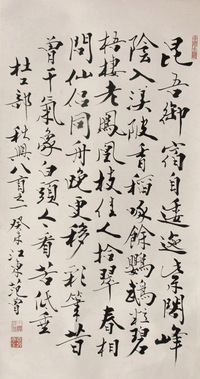 昆吾御宿自逶迤紫閣峰
陰入渼陂香稻啄餘鸚鵡粒碧
梧棲老鳳凰枝佳人拾翠春相
問仙侶同舟晚更移彩筆昔
曾干氣象白頭人看苦低垂
杜工部秋興八首之一癸未江東范曾